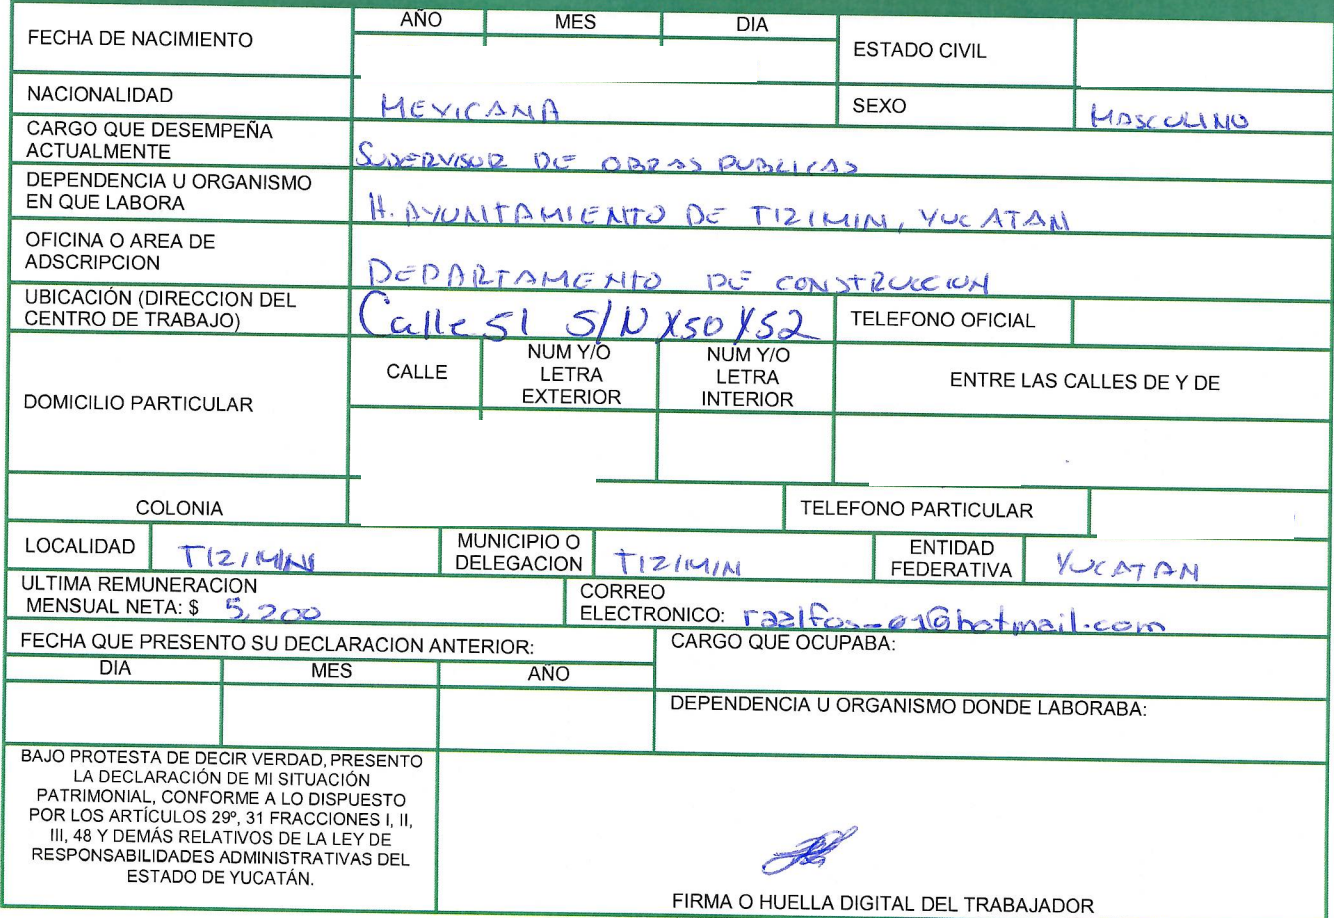 AÑO MES DIA
FECHA DE NACIMIENTO
ESTADO CIVIL
NACIONALIDAD MEXICANA SEXO MASCULINO
CARGO QUE DESEMPEÑA
ACTUALMENTE SUPERVISOR DE OBRAS PUBLICAS
DEPENDENCIA U ORGANISMO
EN QUE LABORA H. AYUNTAMIENTO DE TIZIMIN, YUCATAN
OFICINA O AREA DE
ADSCRIPCION DEPARTAMENTO DE CONSTRUCCION
UBICACIÓN (DIRECCION DEL
CENTRO DE TRABAJO) Calle 51 S/N X50 Y52 TELEFONO OFICIAL
DOMICILIO PARTICULAR
CALLE
NUM Y/O
LETRA
EXTERIOR
NUM Y/O
LETRA
INTERIOR
ENTRE LAS CALLES DE Y DE
COLONIA TELEFONO PARTICULAR
LOCALIDAD TIZIMIN
MUNICIPIO O
DELEGACION TIZIMIN
ENTIDAD
FEDERATIVA YUCATAN
ULTIMA REMUNERACION
MENSUAL NETA: $ 5,200
CORREO
ELECTRONICO: @hotmail.com
FECHA QUE PRESENTO SU DECLARACION ANTERIOR:
DIA MES AÑO
CARGO QUE OCUPABA:
DEPENDENCIA U ORGANISMO DONDE LABORABA:
BAJO PROTESTA DE DECIR VERDAD, PRESENTO
LA DECLARACIÓN DE MI SITUACIÓN
PATRIMONIAL, CONFORME A LO DISPUESTO
POR LOS ARTÍCULOS 29º, 31 FRACCIONES I, II,
III, 48 Y DEMÁS RELATIVOS DE LA LEY DE
RESPONSABILIDADES ADMINISTRATIVAS DEL
ESTADO DE YUCATÁN.
FIRMA O HUELLA DIGITAL DEL TRABAJADOR